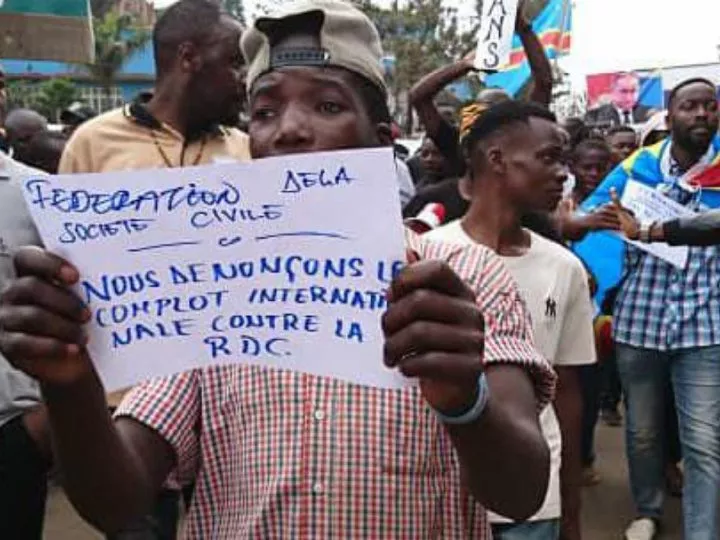 FEDERATION DELA
SOCIETE CIVILE
NOUS DENONÇONS LE
COMPLOT INTERNATI
NALE CONTRE LA
RDC.
ANS
NY